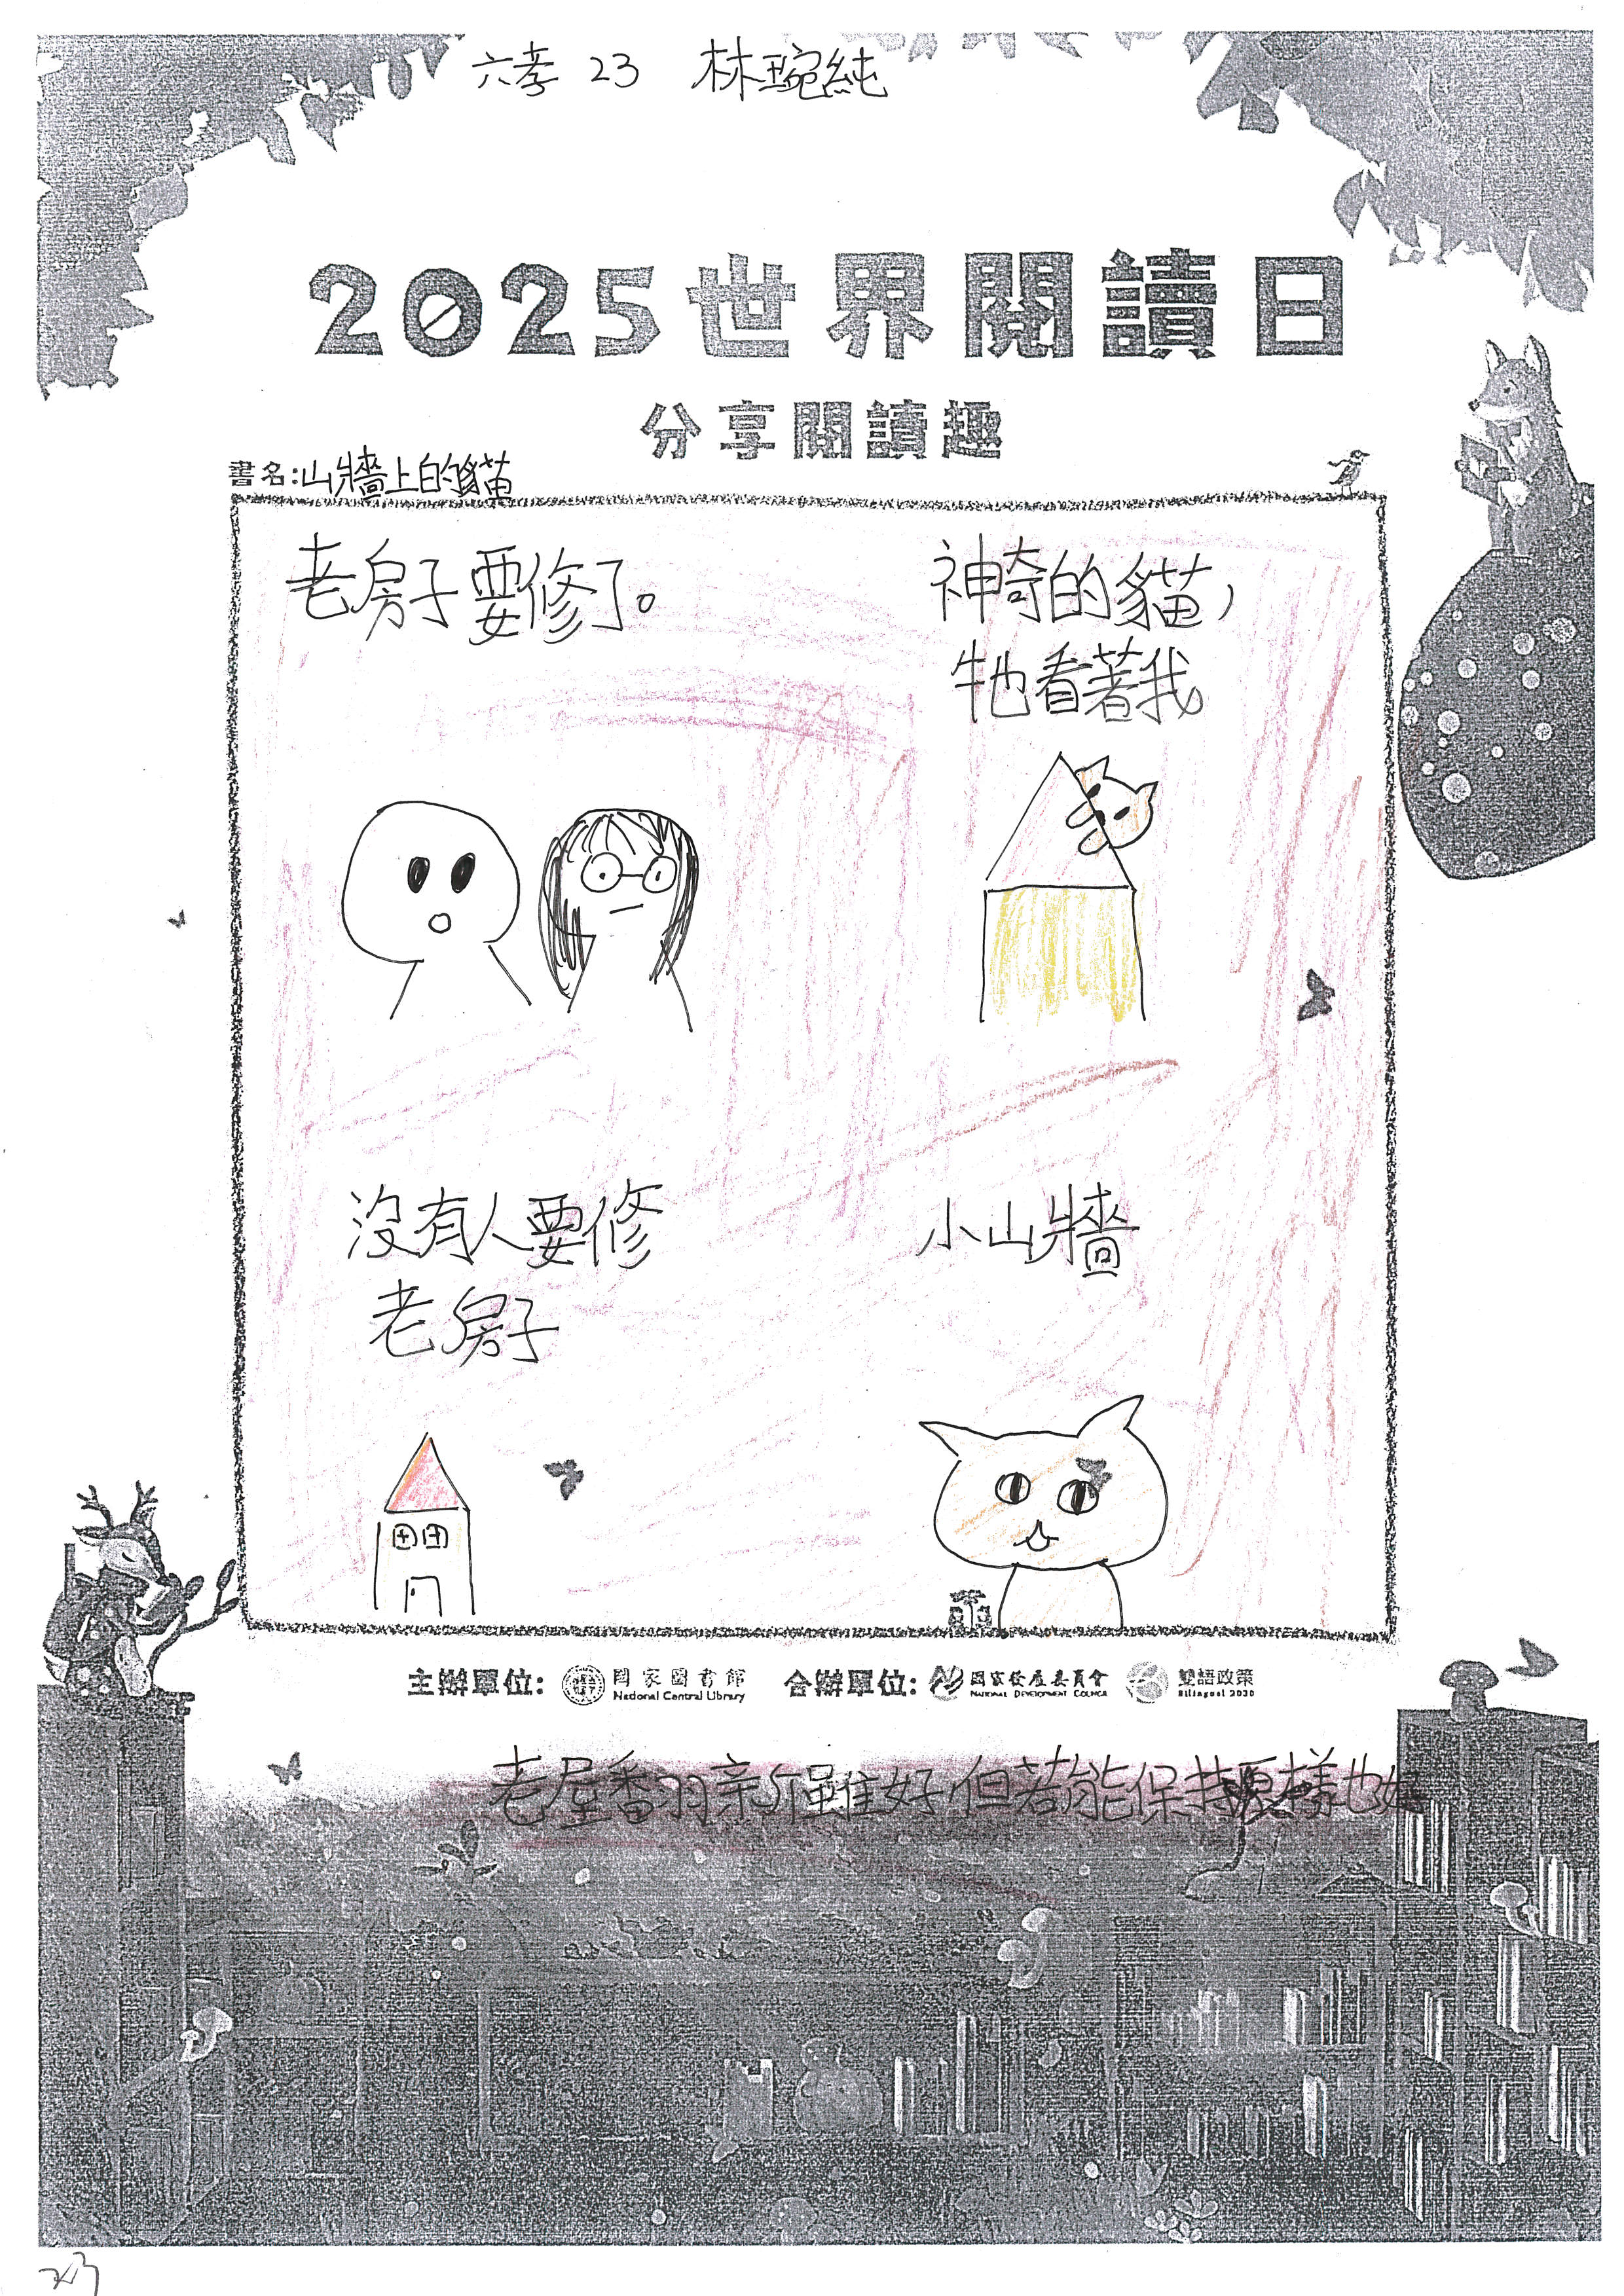 六孝 23 林琬純
2025世界閱讀日
分享閱讀趣
書名:山牆上的貓
老房子要修了。
神奇的貓,
牠看著我
沒有人要修
老房子
小山牆
主辦單位: 國家圖書館 National Central Library 合辦單位: 國家發展委員會 NATIONAL DEVELOPMENT COUNCIL 雙語政策 Bilingual 2030
老屋番羽新雖好但若能保持原樣也好